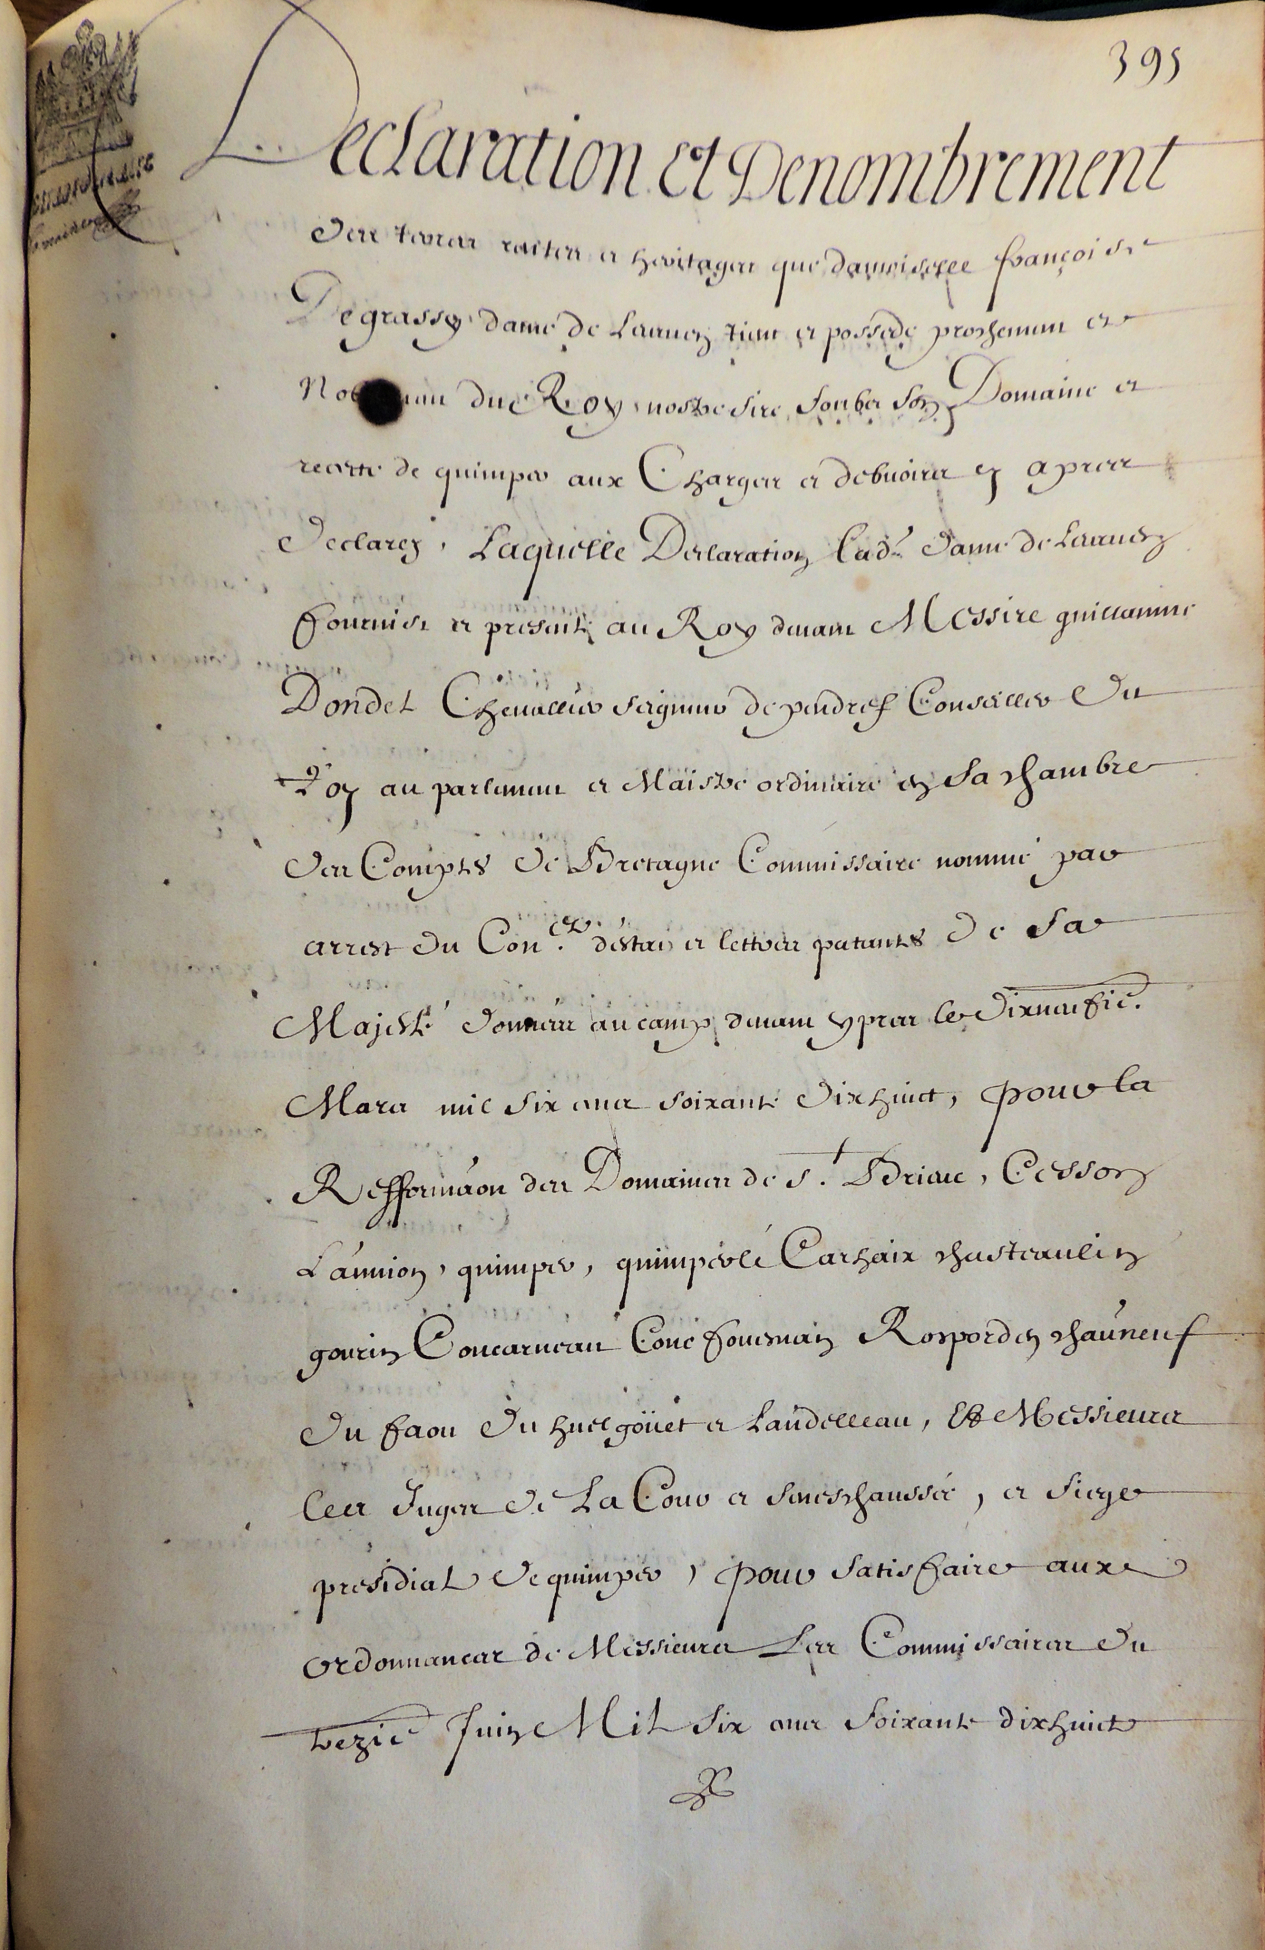 395
Declaration Et Denombrement
des terres rentes et heritages que damoiselle françoise
Degrassy dame de Kerven tient et possede prochement et
Nob ment du Roy nostre sire soubs son Domaine et
recette de quimper aux Charges et debvoirs cy apres
declarez, Laquelle Declaration lad. dame de Kerven
fournist et presente au Roy devant Messire guillaume
Dondel Chevallier seigneur de pendref Conseiller du
Roy au parlement et Maistre ordinaire en sa chambre
des Comptes de Bretagne Commissaire nommé par
arrest du Con.el d'estat et lettres patantes de sa
Majesté données au camp devant ypres le dixneufie.
Mars mil six cens soixante dixhuict, pour la
Refformaon des Domaines de St. Brieuc, Cesson
Lannion, quimper, quimperlé Carhaix chasteaulin
gourin Concarneau Conc fouesnan Rosporden chauneuf
du faou du huelgoüet et Landelleau, Et Messieurs
les Juges de La Cour et seneschaussée, et siege
presidial de quimper, pour satisfaire aux
ordonnances de Messieurs Les Commissaires du
trezie Juin Mil six cens soixante dixhuict